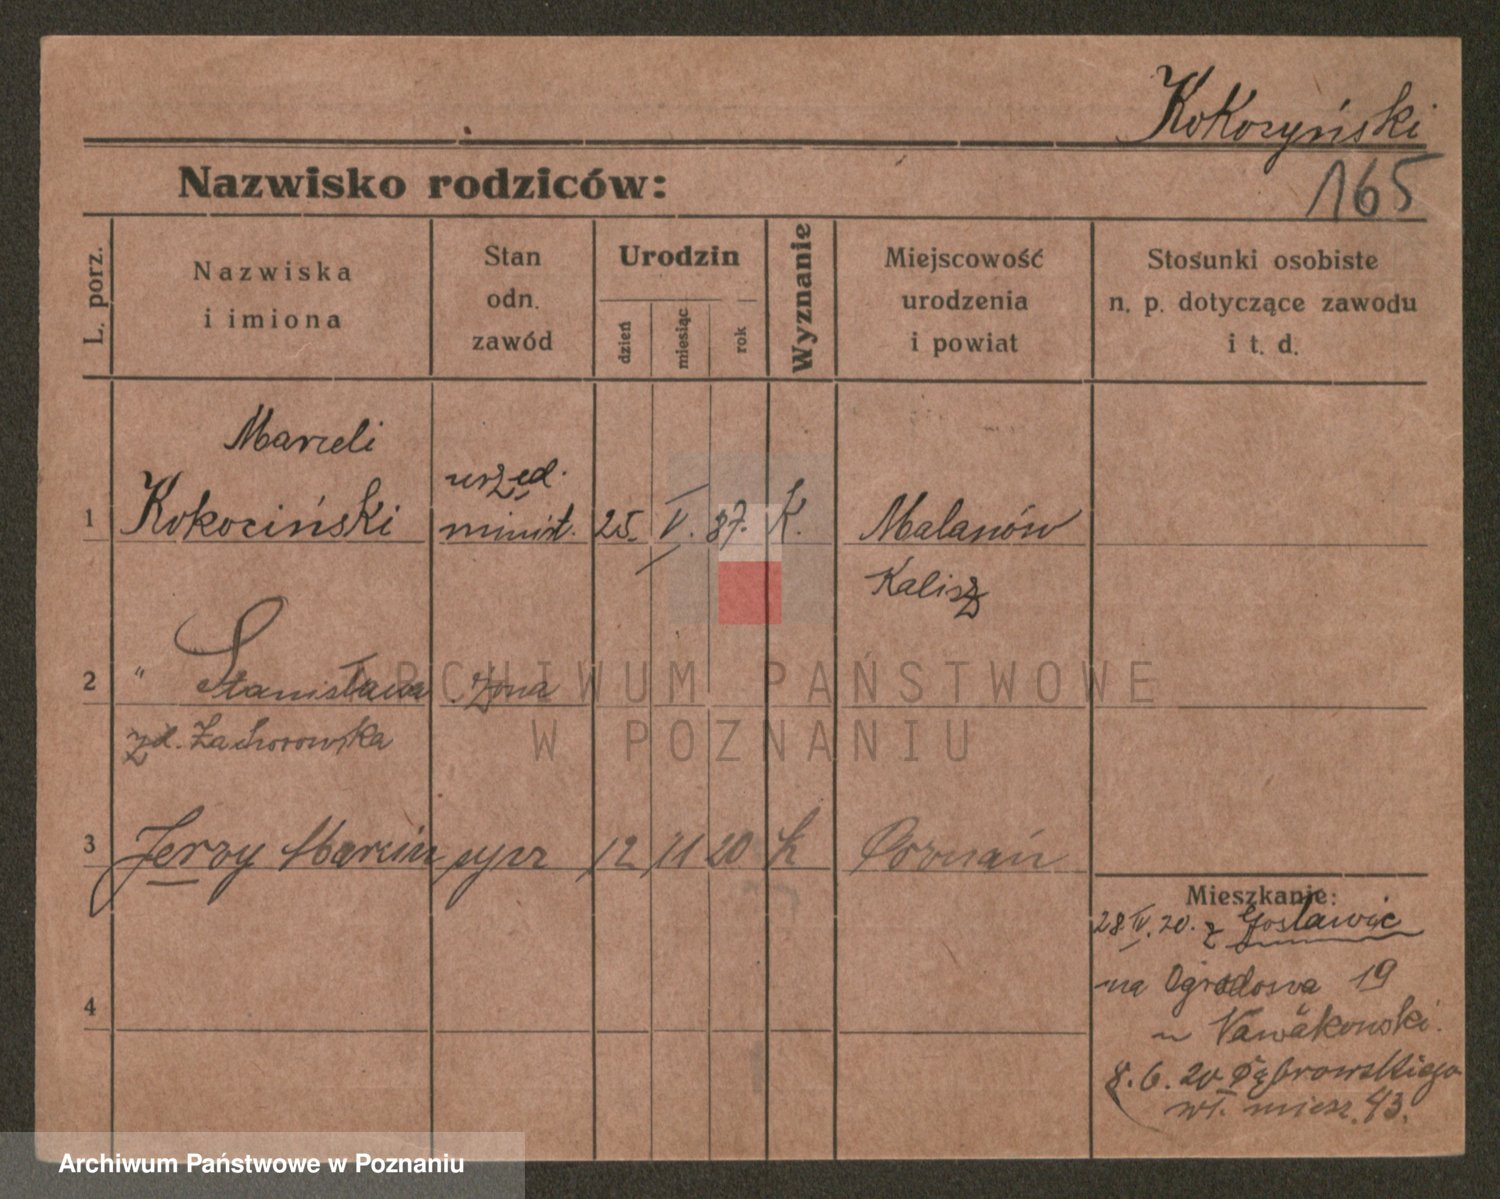 Kokoszyński
165
Nazwisko rodziców:
L. porz.
Nazwiska
i imiona
Stan
odn.
zawód
Urodzin
dzień
miesiąc
rok
Wyznanie
Miejscowość
urodzenia
i powiat
Stosunki osobiste
n. p. dotyczące zawodu
i t. d.
Marceli
1 Kokociński urzęd. minist. 25. V. 87. K. Malanów
Kalisz
2 " Stanisława żona
zd. Zachorowska
3 Jerzy Marcin syn 12 11 20 K Poznań
4
Mieszkanie:
28 IV. 20. z Gosławic
na Ogrodowa 19
u
8. 6. 20 Dąbrowskiego
wł. miesz. 43.
ARCHIWUM PAŃSTWOWE
W POZNANIU
Archiwum Państwowe w Poznaniu